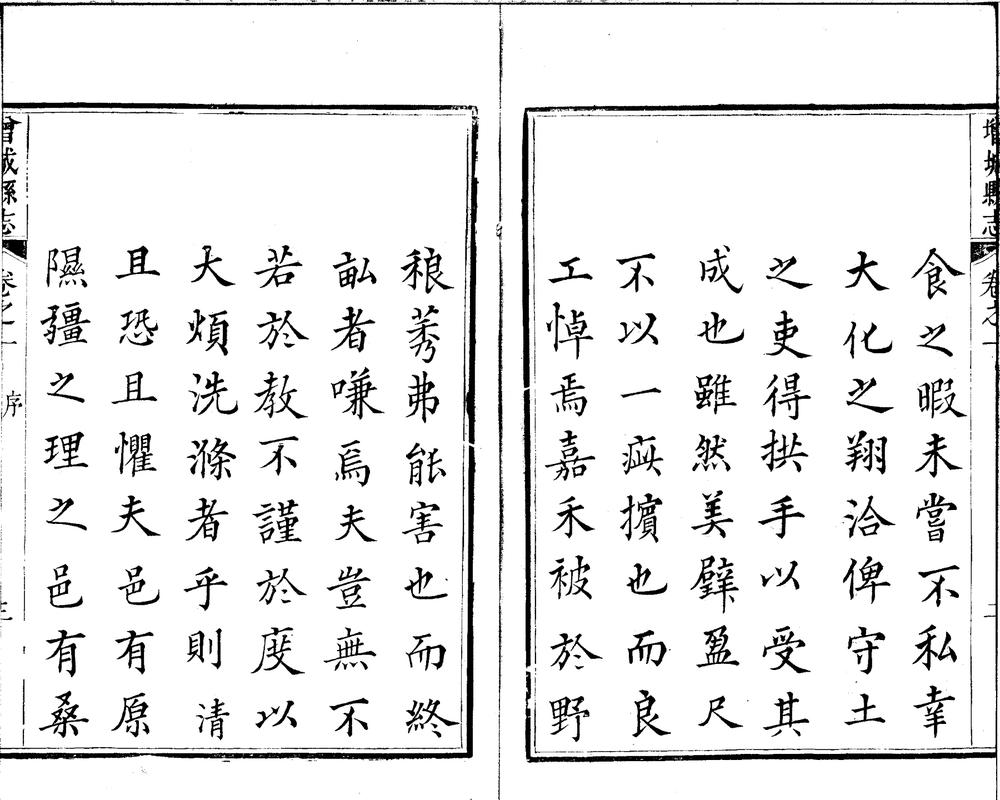 增城縣志 卷之一 二
食之暇未嘗不私幸
大化之翔洽俾守土
之吏得拱手以受其
成也雖然美璧盈尺
不以一擯也而良
工悼焉嘉禾被於野
稂莠弗能害也而終
畆者嗛焉夫豈無不
若於教不謹於度以
大煩洗滌者乎則清
且恐且懼夫邑有原
隰疆之理之邑有桑
增城縣志 卷之一 序 三